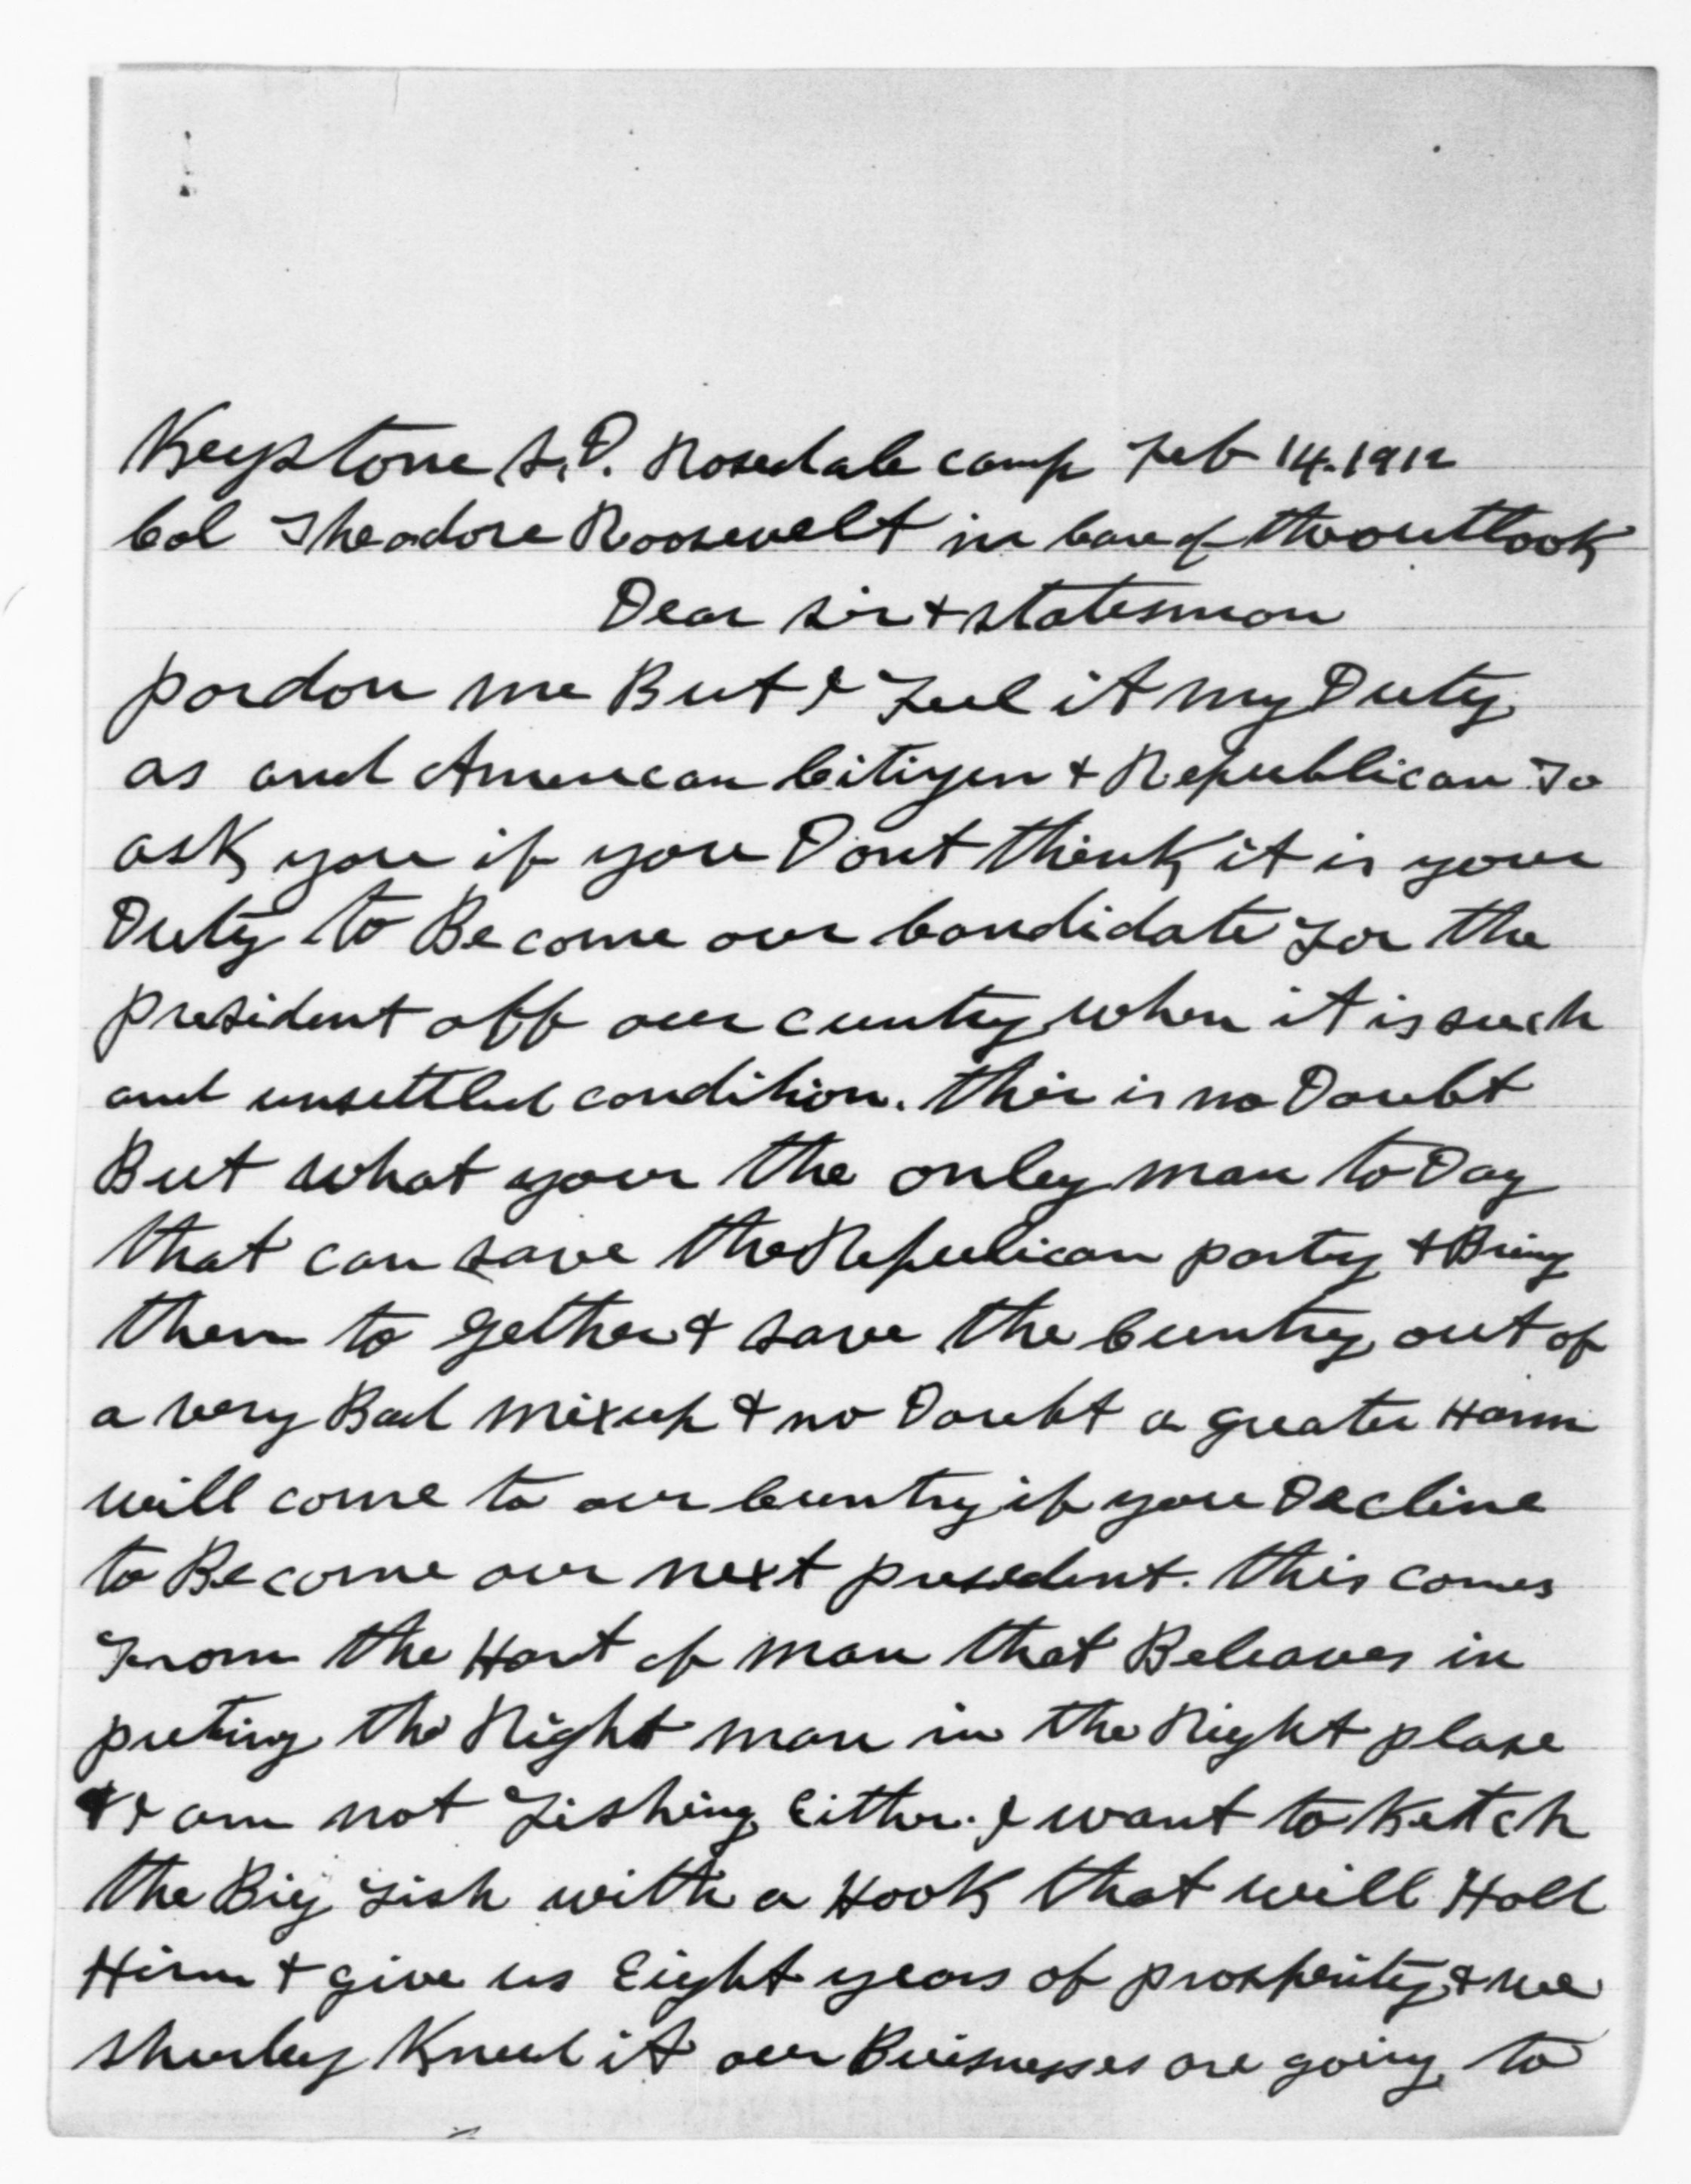 Keystone, S.D. Rosedale camp Feb 14. 1912
Col Theodore Roosevelt in Care of the outlook
Dear Sir & statesman
pardon me But I Feel it my Duty
as and American Citizen & Republican To
ask you if you Dont think it is your
Duty to Become our Candidate For the
president off our cuntry when it is such
and unsettled condition. this is no Doubt
But what your the onley man to Day
that can save the Repulican party & Bring
them to gether & save the Cuntry out of
a very Bad mixup & no Doubt a greater Harm
will come to our Cuntry if you Decline
to Become our next presedent. this comes
From the Hart of man that Beleaves in
puting the Right man in the Right plase
& I am not Fishing Either. I want to Ketch
the Big Fish with a Hook that will Holl
Him & give us Eight years of prosperity & we
shurley Kneed it our Buisnesses are going to